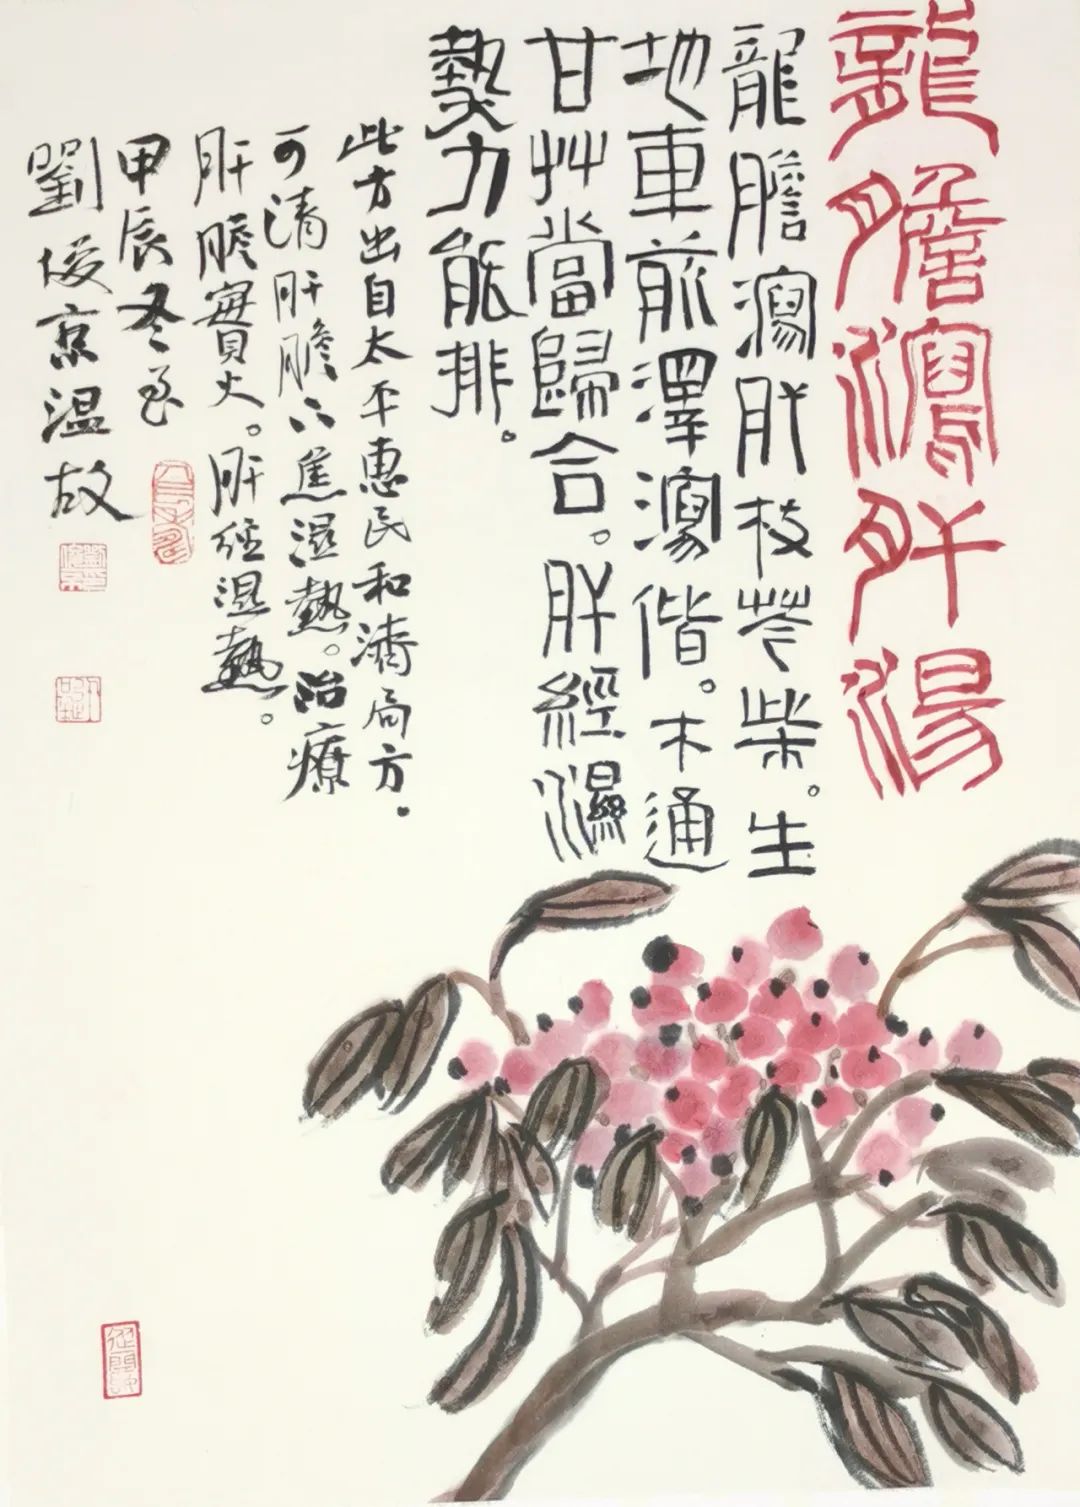 龍膽瀉肝湯
龍膽瀉肝枝芩柴。生
地車前澤瀉偕。木通
甘艸當歸合。肝經濕
熱力能排。
此方出自太平惠民和濟局方。
可清肝膽下焦湿熱。治療
肝膽實火。肝經湿熱。
甲辰冬至
劉俊京温故